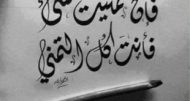 فإن تمنيت شيئ
فأنت كل التمني